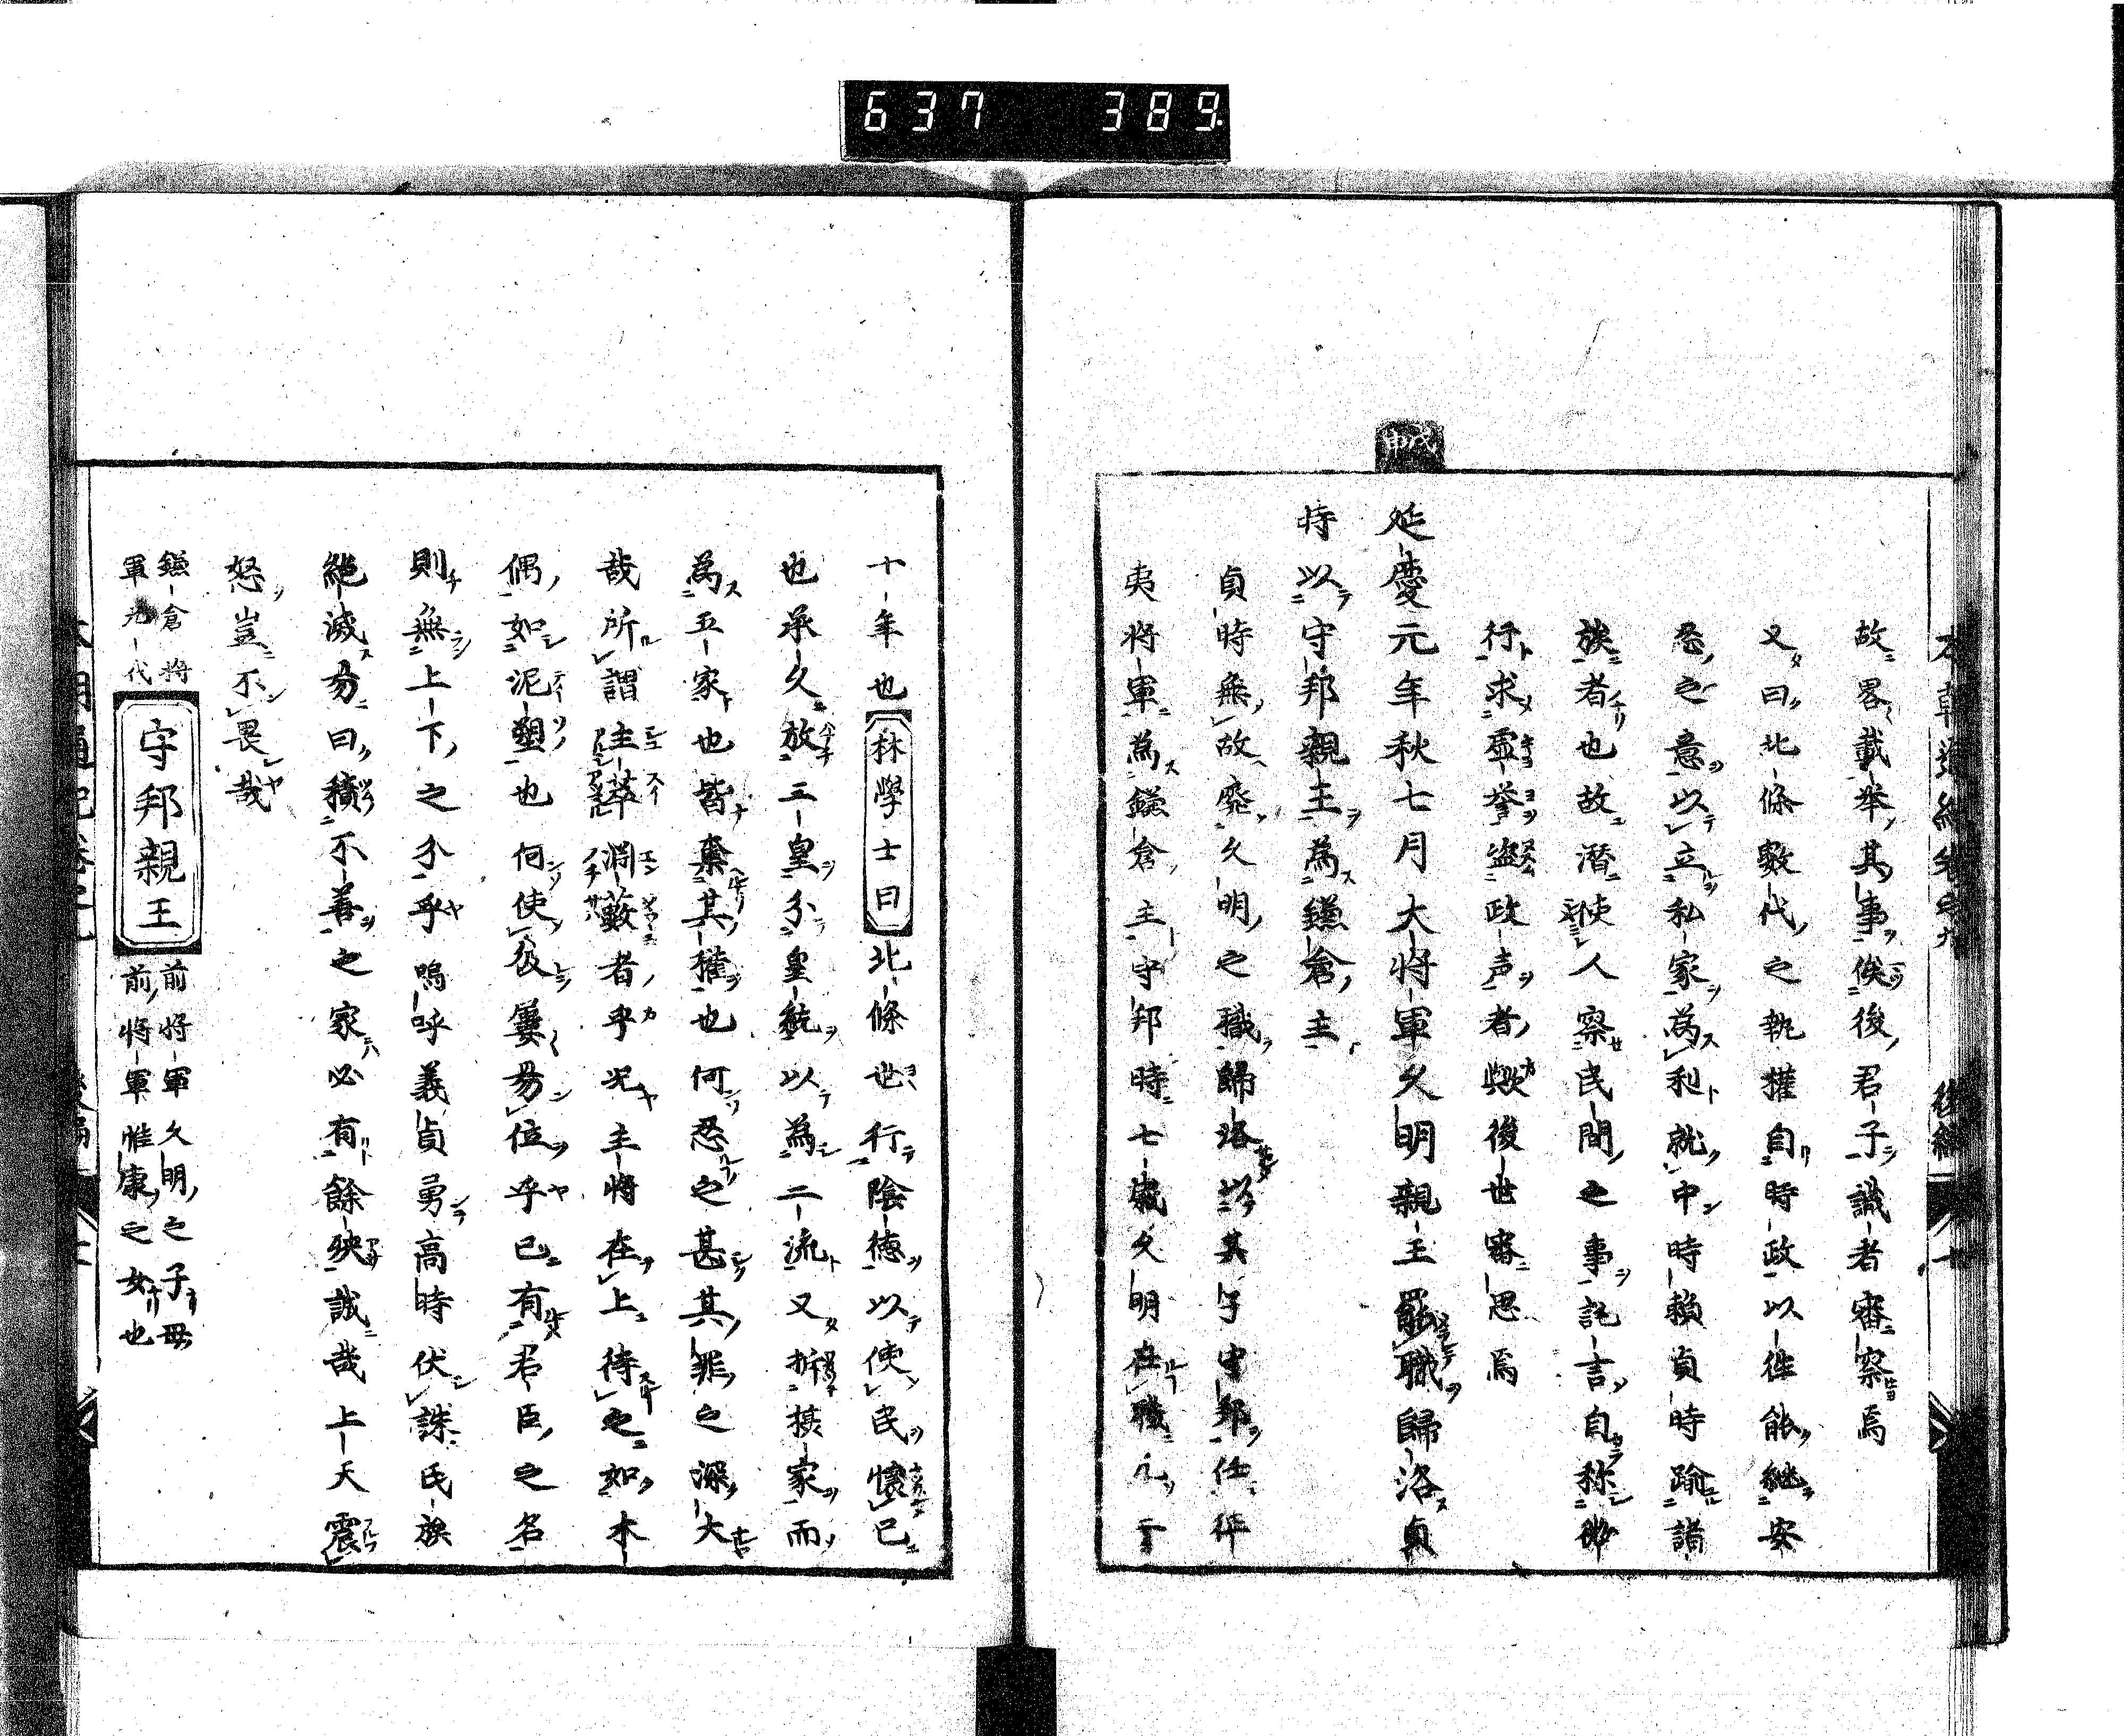 637 389
戊申
故畧載举其事俟後君子識者審察焉
又曰北條數代之執權自時政以徃能継安
忍之意以立私家為利就中時頼貞時踰諸
族者也故潜使人察民間之事託言自称
行求虚誉盗政声者歟後世審思焉
延慶元年秋七月大将軍久明親王罷職歸洛貞
時以守邦親王為鎌倉主
貞時無故廃久明之職歸洛以其子守邦任征
夷将軍為鎌倉主守邦時七歳久明在職
十年也林學士曰北條世行陰徳以使民懷己
也承久放三皇分皇統以為二流又拆摂家而
為五家也皆棄其權也何忍之甚其罪之深大
哉所謂主萃淵藪者乎况主将在上待之如木
偶如泥塑也何使彼屢易位乎已有君臣之名
則無上下之分乎嗚呼義貞勇高時伏誅氏族
絶滅易曰積不善之家必有餘殃誠哉上天震
怒豈不畏哉
鎌倉将軍九代
守邦親王
前将軍久明之子母
前将軍惟康之女也